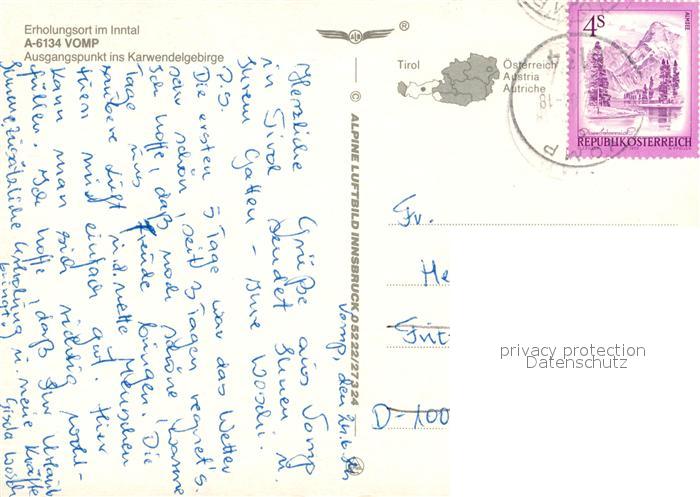 Erholungsort im Inntal
A-6134 VOMP
Ausgangspunkt ins Karwendelgebirge
®
Tirol
Österreich
Austria
Autriche
4S
ALMSEE
REPUBLIK ÖSTERREICH
© ALPINE LUFTBILD INNSBRUCK, 05222/27324
Vomp, den
Herzliche Grüße aus Vomp
in Tirol sendet Ihnen u.
Ihrem Gatten - Ihre
P.S.
Die ersten 5 Tage war das Wetter
sehr schön, seit 3 Tagen regnet's.
Ich hoffe, daß noch schöne warme
Tage uns Freude bringen. Die
saubere Luft u.d. nette Menschen
tuen mir einfach gut. Hier
kann man sich richtig wohl-
fühlen. Ich hoffe, daß Ihr Urlaub
Ihnen zusätzliche Erholung u. neue Kräfte
bringt.
Gisela
Fr.
He
D-100
privacy protection
Datenschutz